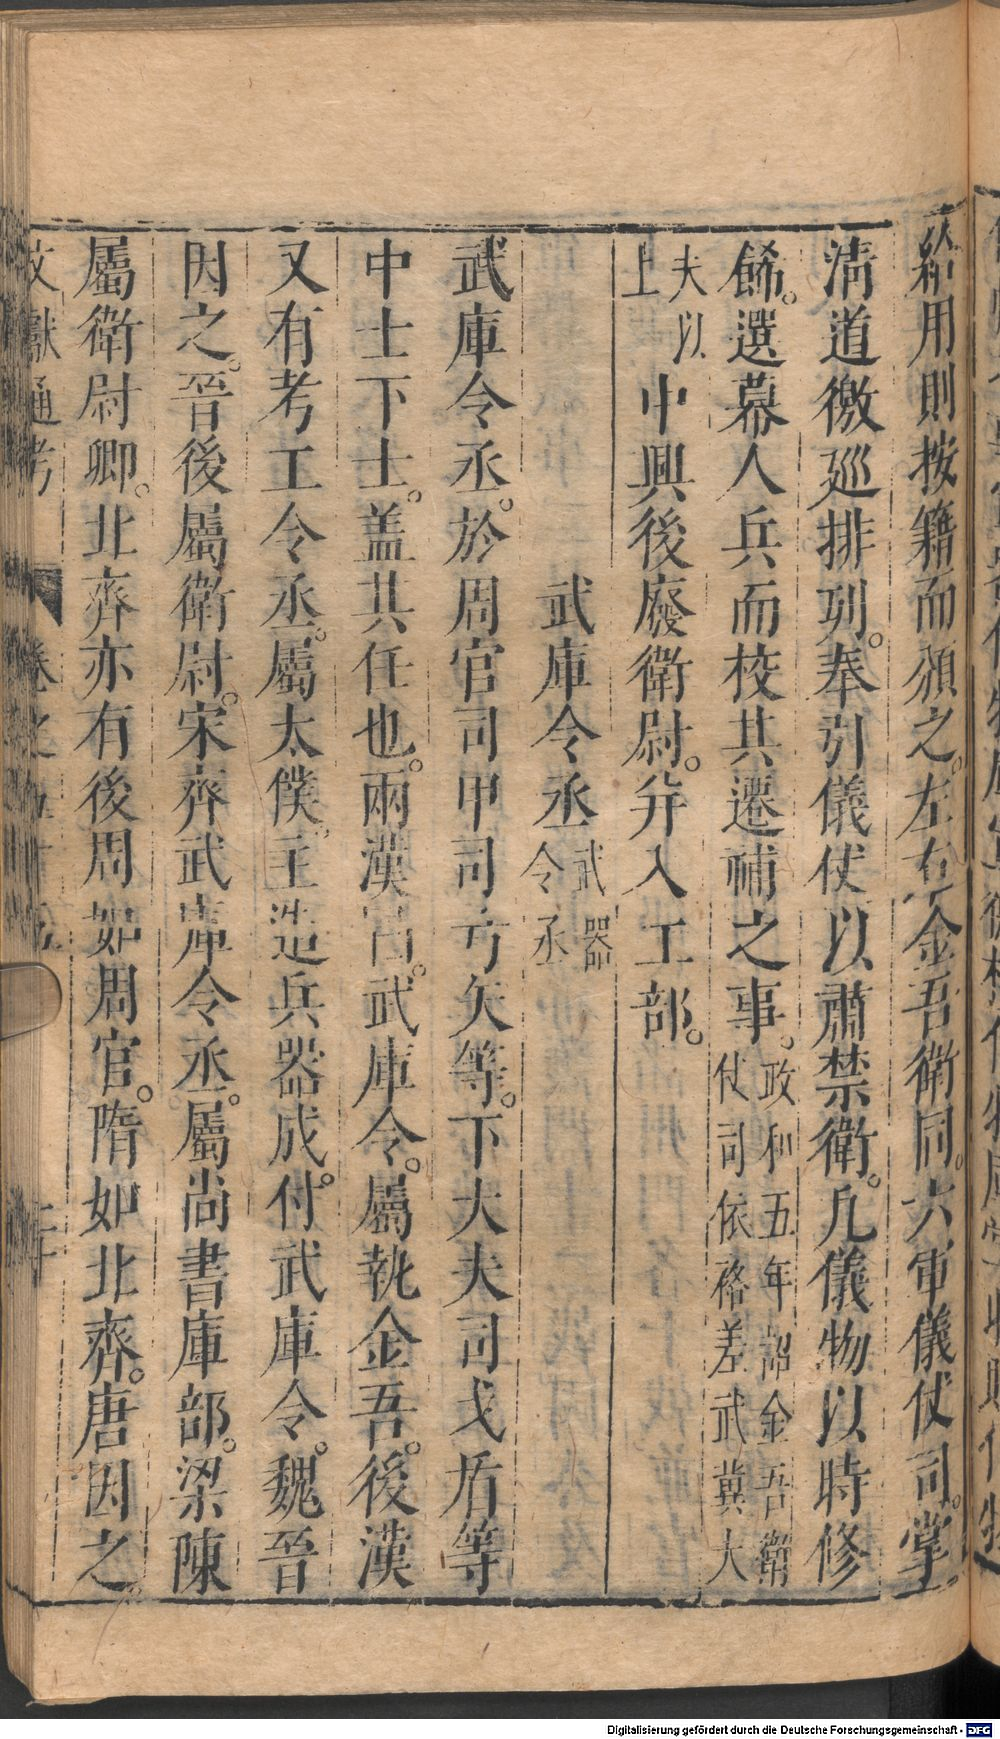 給用則按籍而頒之。左右金吾衛同。六軍儀仗司。掌
清道徼廵排列。奉引儀仗以肅禁衛。凡儀物以時修
飾。選募人兵而校其遷補之事。政和五年詔金吾衛仗司依格差武冀大
夫以上中興後廢衛尉。幷入工部。
武庫令丞武器令丞
武庫令丞。於周官司甲司弓矢等。下大夫司戈盾等
中士下士。盖其任也。兩漢曰。武庫令。屬執金吾。後漢
又有考工令丞。屬太僕。主造兵器成。付武庫令。魏晉
因之。晉後屬衛尉。宋齊武庫令丞。屬尚書庫部。梁陳
屬衛尉卿。北齊亦有後周如周官。隋如北齊。唐因之。
文獻通考 卷之五十五 二十
Digitalisierung gefördert durch die Deutsche Forschungsgemeinschaft - DFG